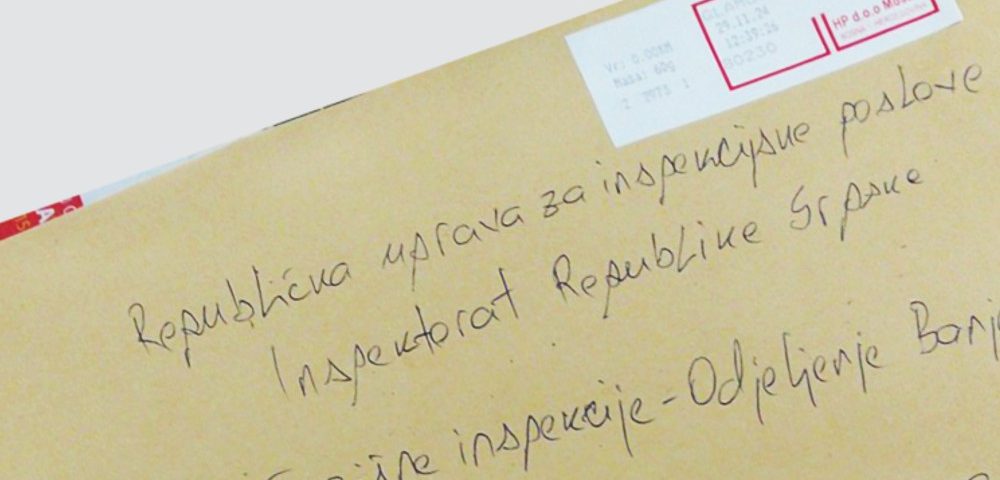 29.11.24
12:39:26
80230
HP d.o.o Mos
Vr: 0.00KM
Masa: 60g
2 7973 1
Republička uprava za inspekcijske poslove
Inspektorat Republike Srpske
inspekcije - Odjeljenje Banj